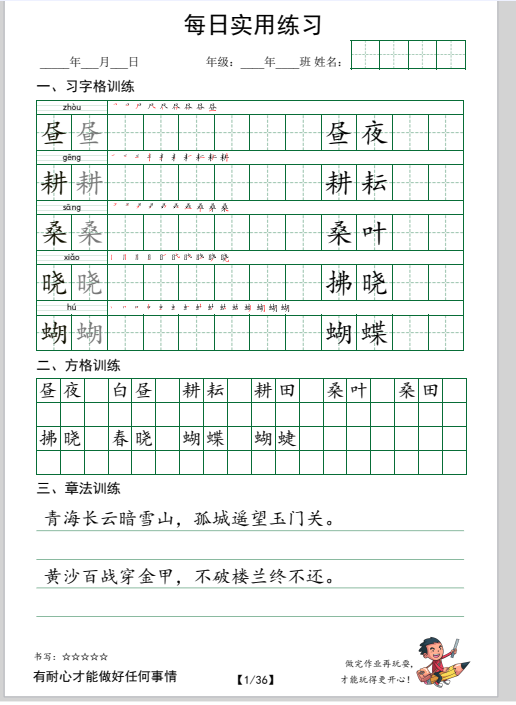 每日实用练习
____年___月___日 年级：____年____班 姓名：
一、习字格训练
zhòu
昼 昼 昼 夜
gēng
耕 耕 耕 耘
sāng
桑 桑 桑 叶
xiǎo
晓 晓 拂 晓
hú
蝴 蝴 蝴 蝶
二、方格训练
昼夜 白昼 耕耘 耕田 桑叶 桑田
拂晓 春晓 蝴蝶 蝴蜨
三、章法训练
青海长云暗雪山，孤城遥望玉门关。
黄沙百战穿金甲，不破楼兰终不还。
书写：☆☆☆☆☆
有耐心才能做好任何事情
【1/36】
做完作业再玩耍，
才能玩得更开心！